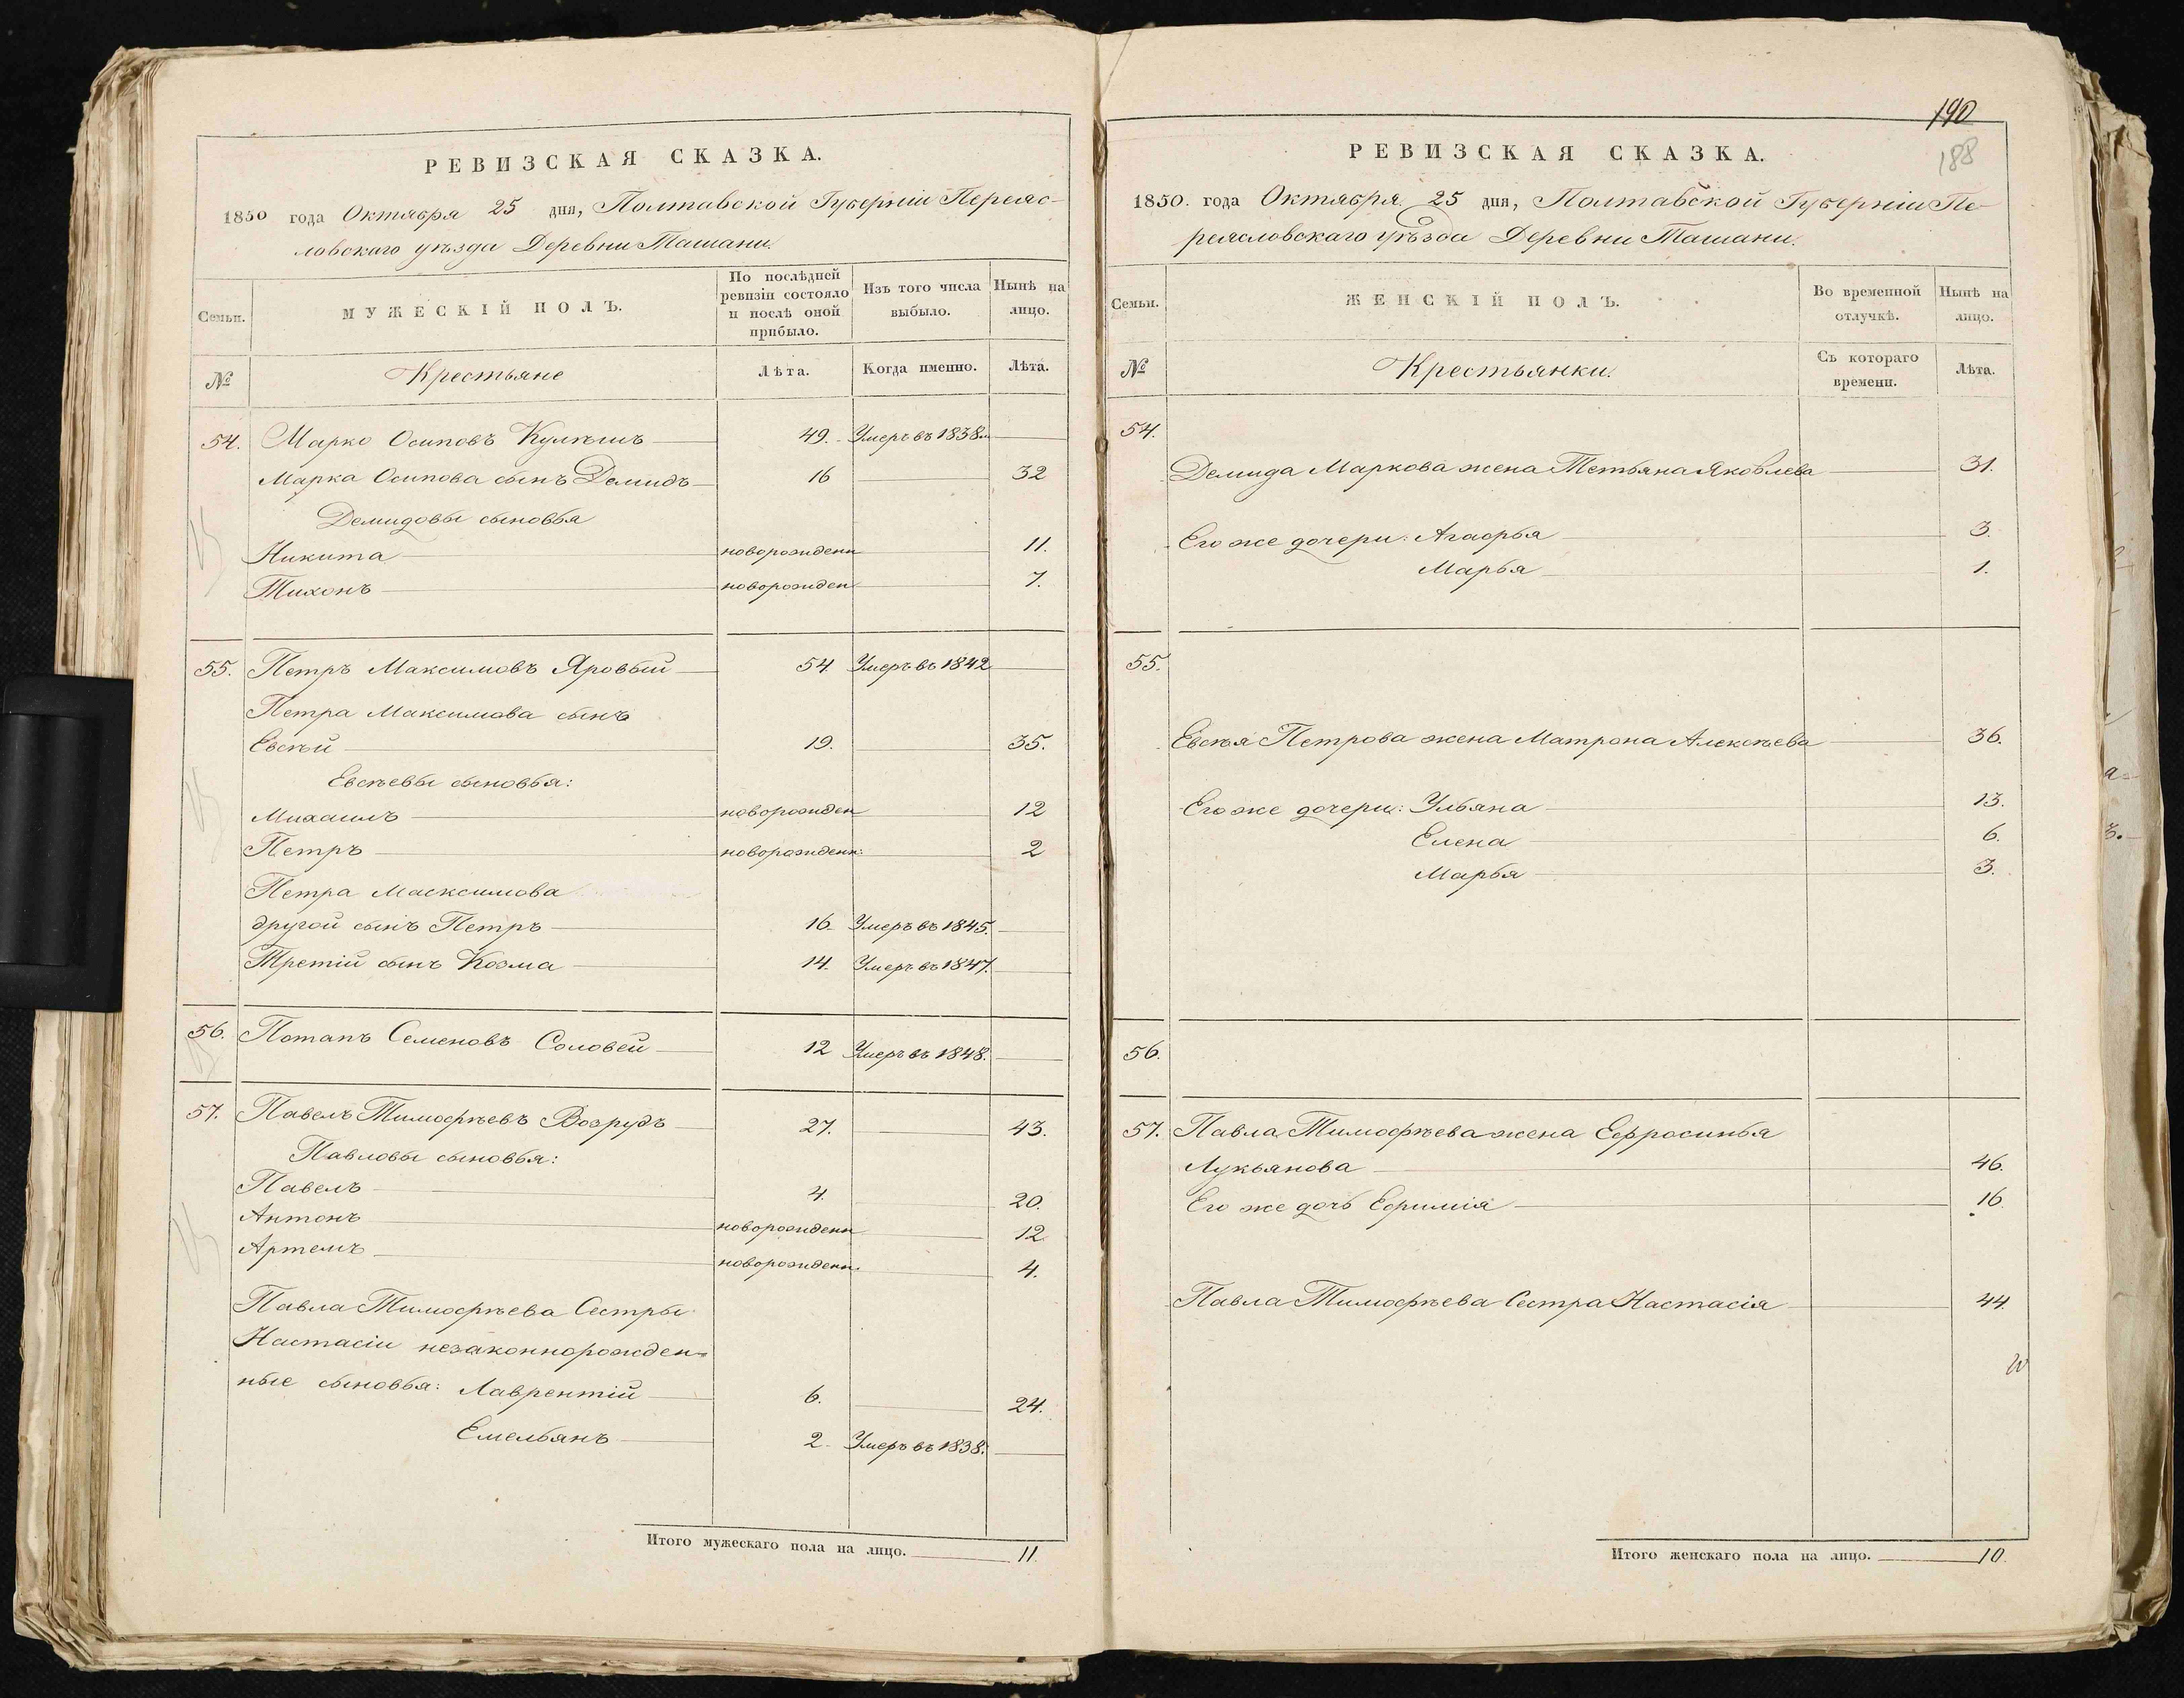 РЕВИЗСКАЯ СКАЗКА.
1850 года Октября 25 дня, Полтавской Губерніи Переяс-
ловскаго уѣзда Деревни Ташани.
Семьи.
МУЖЕСКІЙ ПОЛЪ.
По послѣдней ревизіи состояло и послѣ оной прибыло.
Изъ того числа выбыло.
Нынѣ на лицо.
№
Крестьяне
Лѣта.
Когда именно.
Лѣта.
54. Марко Осиповъ Кулѣшъ 49. Умеръ въ 1838
Марка Осипова сынъ Демидъ 16 32
Демидовы сыновья
Никита новорожденн 11.
Тихонъ новорожден 7.
55. Петръ Максимовъ Яровый 54. Умеръ въ 1842
Петра Максимова сынъ
Евсѣй 19. 35.
Евсѣевы сыновья:
Михаилъ новорожден 12
Петръ новорожденн: 2
Петра Маскимова
другой сынъ Петръ 16. Умеръ въ 1845.
Третій сынъ Козма 14. Умеръ въ 1847.
56. Потапъ Семеновъ Соловей 12 Умеръ въ 1848.
57. Павелъ Тимофѣевъ Возрудъ 27. 43.
Павловы сыновья:
Павелъ 4. 20.
Антонъ новорожденн 12.
Артемъ новорожденн. 4.
Павла Тимофѣева Сестры
Настасіи незаконнорожден=
ные сыновья: Лаврентій 6. 24.
Емельянъ 2. Умеръ въ 1838.
Итого мужескаго пола на лицо. 11.
190
188
РЕВИЗСКАЯ СКАЗКА.
1850. года Октября. 25 дня, Полтавской Губерніи Пе-
реясловскаго уѣзда Деревни Ташани.
Семьи.
ЖЕНСКІЙ ПОЛЪ.
Во временной отлучкѣ.
Нынѣ на лицо.
№
Крестьянки.
Съ котораго времени.
Лѣта.
54.
Демида Маркова жена Тетьяна Яковлева 31.
Его же дочери: Агафья 3.
Марья 1.
55.
Евсѣя Петрова жена Матрона Алексѣева 36.
Его же дочери: Ульяна 13.
Елена 6.
Марья 3.
56.
57. Павла Тимофѣева жена Ефросинья
Лукьянова 46.
Его же дочь Ефимія 16.
Павла Тимофѣева Сестра Настасія 44.
Итого женскаго пола на лицо. 10.